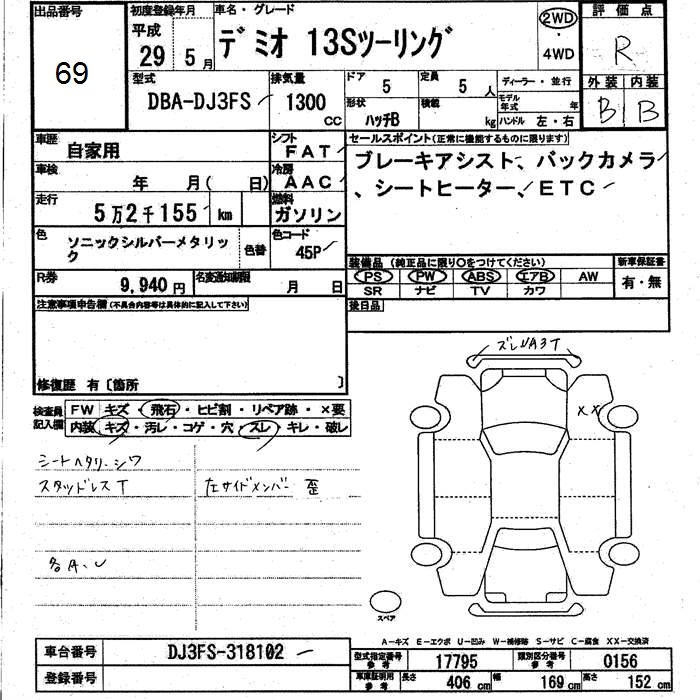 出品番号
69
初度登録年月
平成
29 5月
車名・グレード
デミオ 13Sツーリング
2WD
・
4WD
評価点
R
外装 内装
B B
型式
DBA-DJ3FS
排気量
1300
CC
ドア 5
定員 5 人
形状 ハッチB
積載 kg
ディーラー・並行
モデル年式 年
ハンドル 左・右
車歴 自家用
シフト FAT
車検 年 月( 日)
冷房 AAC
走行 5万2千155 km
燃料 ガソリン
色 ソニックシルバーメタリック
色替
色コード 45P
R券 9,940円
名変通知期限 月 日
セールスポイント(正常に機能するものに限ります)
ブレーキアシスト、バックカメラ
、シートヒーター、ETC
装備品 (純正品に限り○をつけてください)
PS PW ABS エアB AW
SR ナビ TV カワ
新車保証書
有・無
後日品
注意事項申告欄(不具合内容等は具体的に記入して下さい)
修復歴 有〔箇所 〕
検査員記入欄
FW キズ・飛石・ヒビ割・リペア跡・×要
内装 キズ・汚レ・コゲ・穴・スレ・キレ・破レ
シートヘタリ・シワ
スタッドレスT
左サイドメンバー 歪
各A、U
ズレUA3T
XX
スペア
A-キズ E-エクボ U-凹み W-補修跡 S-サビ C-腐食 XX-交換済
車台番号 DJ3FS-318102
登録番号
型式指定番号 参考 17795
類別区分番号 参考 0156
車庫証明用 参考 長さ 406 cm 幅 169 cm 高さ 152 cm